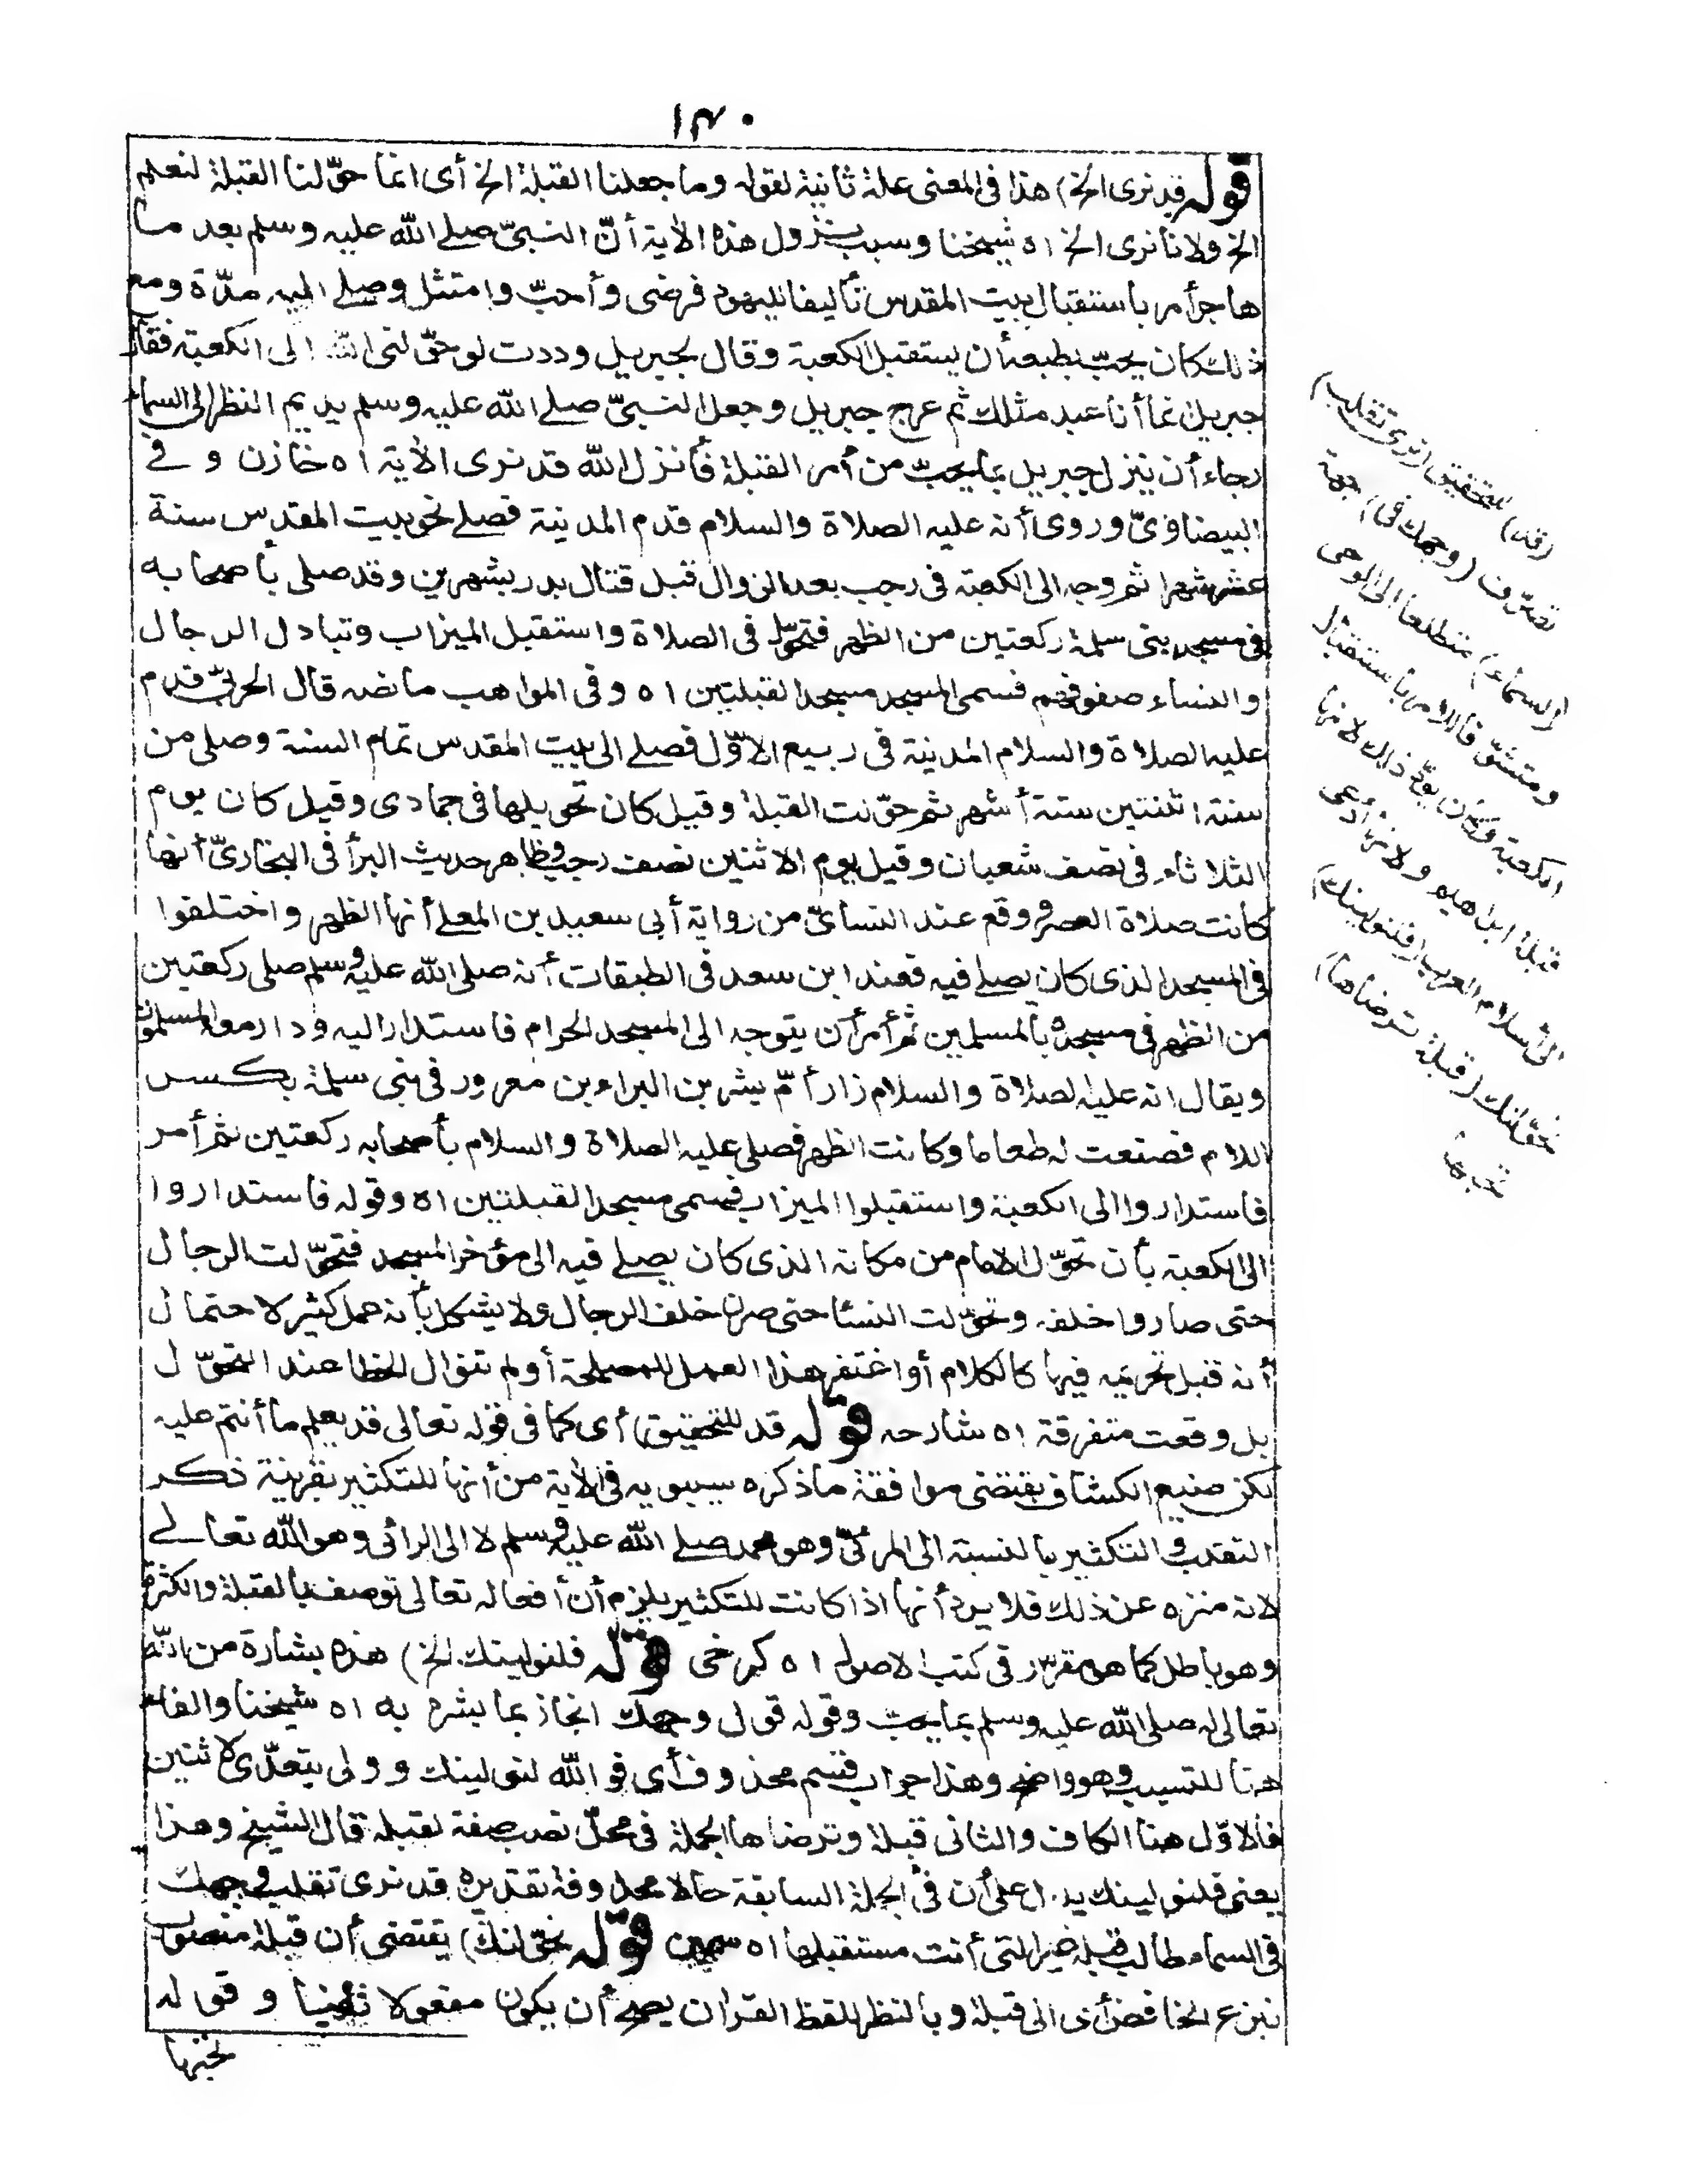 ١٣٠
قوله قد نرى الخ) هذا فى المعنى علة ثانية لقوله وما جعلنا القبلة الخ أى انما حوّلنا القبلة لنعلم
الخ ولانا نرى الخ اه شيخنا وسبب نزول هذه الآية أنّ النبىّ صلى الله عليه وسلم بعد ما
هاجر أمر باستقبال بيت المقدس تأليفا لليهود فرضى وأحبّ وامتثل وصلى اليه مدّة ومع
ذلك كان يحبّ بطبعه أن يستقبل الكعبة وقال لجبريل وددت لو حوّلنى الله الى الكعبة فقال
جبريل انما أنا عبد مثلك ثم عرج جبريل وجعل النبىّ صلى الله عليه وسلم يديم النظر الى السماء
رجاء أن ينزل جبريل بما يحبّ من أمر القبلة فأنزل الله قد نرى الآية اه خازن و فى
البيضاوىّ وروى أنه عليه الصلاة والسلام قدم المدينة فصلى نحو بيت المقدس ستة
عشر شهرا ثم وجه الى الكعبة فى رجب بعد الزوال قبل قتال بدر بشهرين وقد صلى بأصحابه
فى مسجد بنى سلمة ركعتين من الظهر فتحوّل فى الصلاة واستقبل الميزاب وتبادل الرجال
والنساء صفوفهم فسمى المسجد مسجد القبلتين اه وفى المواهب ما نصه قال الحربىّ قدم
عليه الصلاة والسلام المدينة فى ربيع الاوّل فصلى الى بيت المقدس تمام السنة وصلى من
سنة اثنتين ستة أشهر ثم حوّلت القبلة وقيل كان تحويلها فى جمادى وقيل كان يوم
الثلاثاء فى نصف شعبان وقيل يوم الاثنين نصف رجب وظاهر حديث البرأ فى البخارىّ أنها
كانت صلاة العصر ووقع عند النسائىّ من رواية أبى سعيد بن المعلى أنها الظهر واختلفوا
فى المسجد الذى كان يصلى فيه فعند ابن سعد فى الطبقات أنه صلى الله عليه وسلم صلى ركعتين
من الظهر فى مسجده بالمسلمين ثم أمر أن يتوجه الى المسجد الحرام فاستدار اليه ودار معه المسلمون
ويقال انه عليه الصلاة والسلام زار أمّ بشر بن البراء بن معرور فى بنى سلمة بكسر
اللام فصنعت له طعاما وكانت الظهر فصلى عليه الصلاة والسلام بأصحابه ركعتين ثم أمر
فاستداروا الى الكعبة واستقبلوا الميزاب فسمى مسجد القبلتين اه وقوله فاستداروا
الى الكعبة بأن تحوّل الامام من مكانه الذى كان يصلى فيه الى مؤخر المسجد فتحوّلت الرجال
حتى صاروا خلفه وتحوّلت النسا حتى صرن خلف الرجال ولا يشكل بأنه عمل كثير لاحتمال
أنه قبل تحريمه فيها كالكلام أو اغتفر هذا العمل للمصلحة أو لم تتوال الخطا عند التحوّل
بل وقعت متفرقة اه شارحه قوله قد للتحقيق) أى كما فى قوله تعالى قد يعلم ما أنتم عليه
لكن صنيع الكشاف يقتضى موافقة ما ذكره سيبويه فى الآية من أنها للتكثير بقرينة ذكر
التقلب والتكثير بالنسبة الى المرئىّ وهو محمد صلى الله عليه وسلم لا الى الرائى وهو الله تعالى
لانه منزه عن ذلك فلا يرد أنها اذا كانت للتكثير يلزم أن أفعاله تعالى توصف بالقلة والكثرة
وهو باطل كما هو مقرّر فى كتب الاصول اه كرخى قوله فلنولينك الخ) هذه بشارة من الله
تعالى له صلى الله عليه وسلم بما يحب وقوله فول وجهك انجاز بما بشره به اه شيخنا والفاء
هنا للتسبب وهو واضح وهذا جواب قسم محذوف أى فو الله لنولينك وولى يتعدّى لاثنين
فالاوّل هنا الكاف والثانى قبلة وترضاها الجملة فى محلّ نصب صفة لقبلة قال الشيخ وهذا
يعنى فلنولينك يدل على أن فى الجملة السابقة حالا محذوفة تقديره قد نرى تقلب وجهك
فى السماء طالبا قبلة غير التى أنت مستقبلها اه سمين قوله نحوّلنك) يقتضى أن قبلة منصوب
بنزع الخافض أى الى قبلة وبالنظر للفظ القران يصح أن يكون مفعولا ثانيا و قوله
تحبها
(قد) للتحقيق (نرى تقلب)
تصرّف (وجهك فى) جهة
(السماء) متطلعا الى الوحى
ومتشوّقا للامر باستقبال
الكعبة وكان يودّ ذلك لانها
قبلة ابراهيم ولانها أدعى
الى اسلام العرب (فلنولينك)
نحوّلنك (قبلة ترضاها)
تحبها